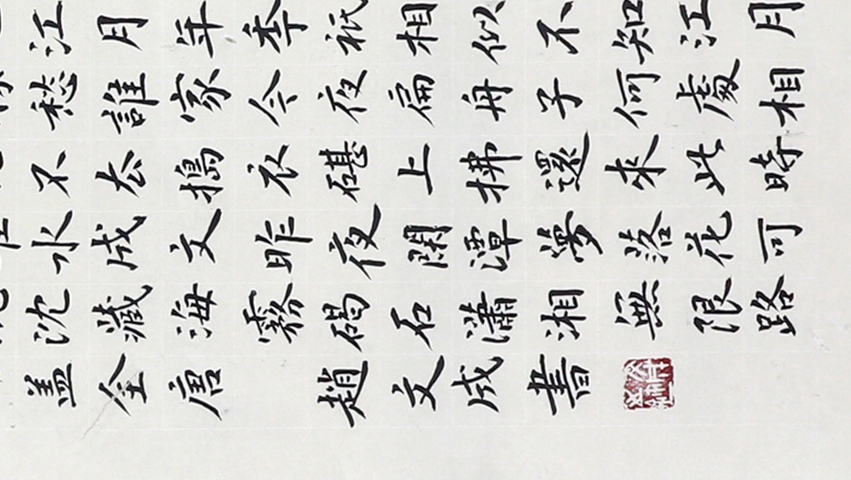 江月年秊祇相似不知江月
愁誰家今夜扁舟子何處相
不去搗衣碪上拂還來此時
水成文昨夜閑潭夢落花可
沈藏海霧碣石瀟湘無限路
盖全唐 趙文成書